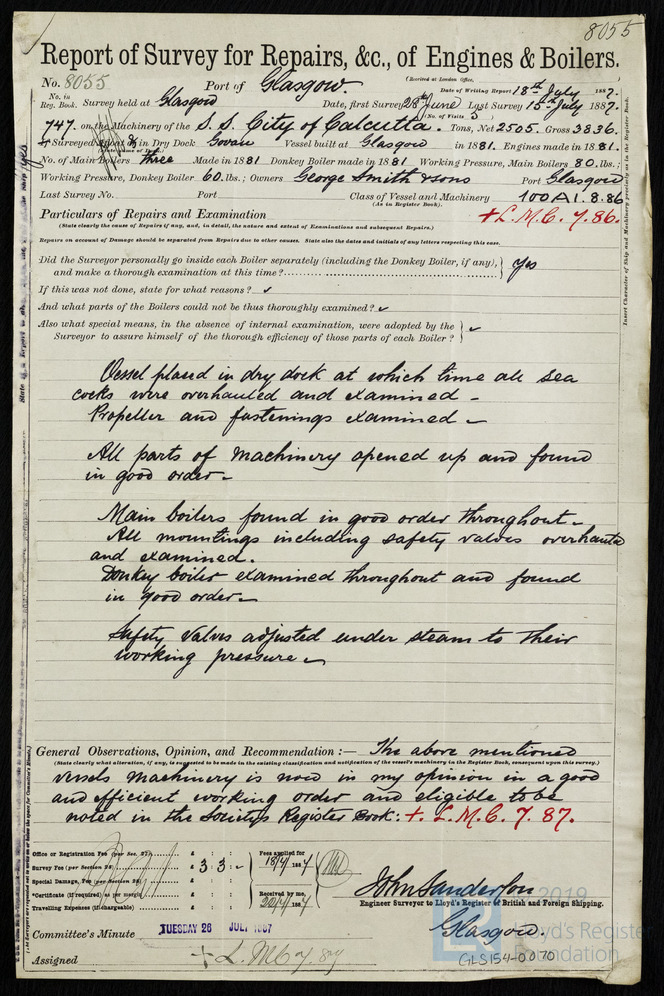 8055
Report of Survey for Repairs, &c., of Engines & Boilers.
(Received at London Office,
No. 8055 Port of Glasgow. Date of Writing Report 18th July 1887.
No. in Reg. Book. Survey held at Glasgow Date, first Survey 28th June Last Survey 15th July 1887.
(No. of Visits 5)
747. on the Machinery of the S.S. City of Calcutta. Tons, Net 2505. Gross 3336.
If Surveyed Afloat & in Dry Dock Govan Vessel built at Glasgow in 1881. Engines made in 1881.
No. of Main Boilers three Made in 1881 Donkey Boiler made in 1881 Working Pressure, Main Boilers 80 lbs.:
Working Pressure, Donkey Boiler 60 lbs.; Owners George Smith & Sons Port Glasgow
Last Survey No. Port Class of Vessel and Machinery 100A1. 8.86
(As in Register Book).
Particulars of Repairs and Examination + L.M.C. 7.86.
(State clearly the cause of Repairs if any, and, in detail, the nature and extent of Examinations and subsequent Repairs.)
Repairs on account of Damage should be separated from Repairs due to other causes. State also the dates and initials of any letters respecting this case.
Did the Surveyor personally go inside each Boiler separately (including the Donkey Boiler, if any), and make a thorough examination at this time? Yes
If this was not done, state for what reasons? ✓
And what parts of the Boilers could not be thus thoroughly examined? ✓
Also what special means, in the absence of internal examination, were adopted by the
Surveyor to assure himself of the thorough efficiency of those parts of each Boiler? ✓
Vessel placed in dry dock at which time all sea
cocks were overhauled and examined -
Propeller and fastenings examined -
All parts of machinery opened up and found
in good order -
Main boilers found in good order throughout -
All mountings including safety valves overhauled
and examined.
Donkey boiler examined throughout and found
in good order -
Safety valves adjusted under steam to their
working pressure -
General Observations, Opinion, and Recommendation :— The above mentioned
(State clearly what alteration, if any, is suggested to be made in the existing classification and notification of the vessel's machinery in the Register Book, consequent upon this survey.)
vessels machinery is now in my opinion in a good
and efficient working order and eligible to be
noted in the Society's Register Book: + L.M.C. 7. 87.
Office or Registration Fee (per Sec. 27) £ : :
Survey Fee (per Section 28) £ 3 : 3 : -
Special Damage, Fee (per Section 28) £ : :
Certificate (if required) as per margin £ : :
Travelling Expenses (if chargeable) £ : :
Fees applied for
18/7/1887
Received by me,
20/7/1887
John Sanderson
Engineer Surveyor to Lloyd's Register of British and Foreign Shipping.
Glasgow.
Committee's Minute TUESDAY 26 JULY 1887
Assigned + L.M.C. 7.87
GLS154-0070
2019
Lloyd's Register
Foundation
Insert Character of Ship and Machinery precisely as in the Register Book.